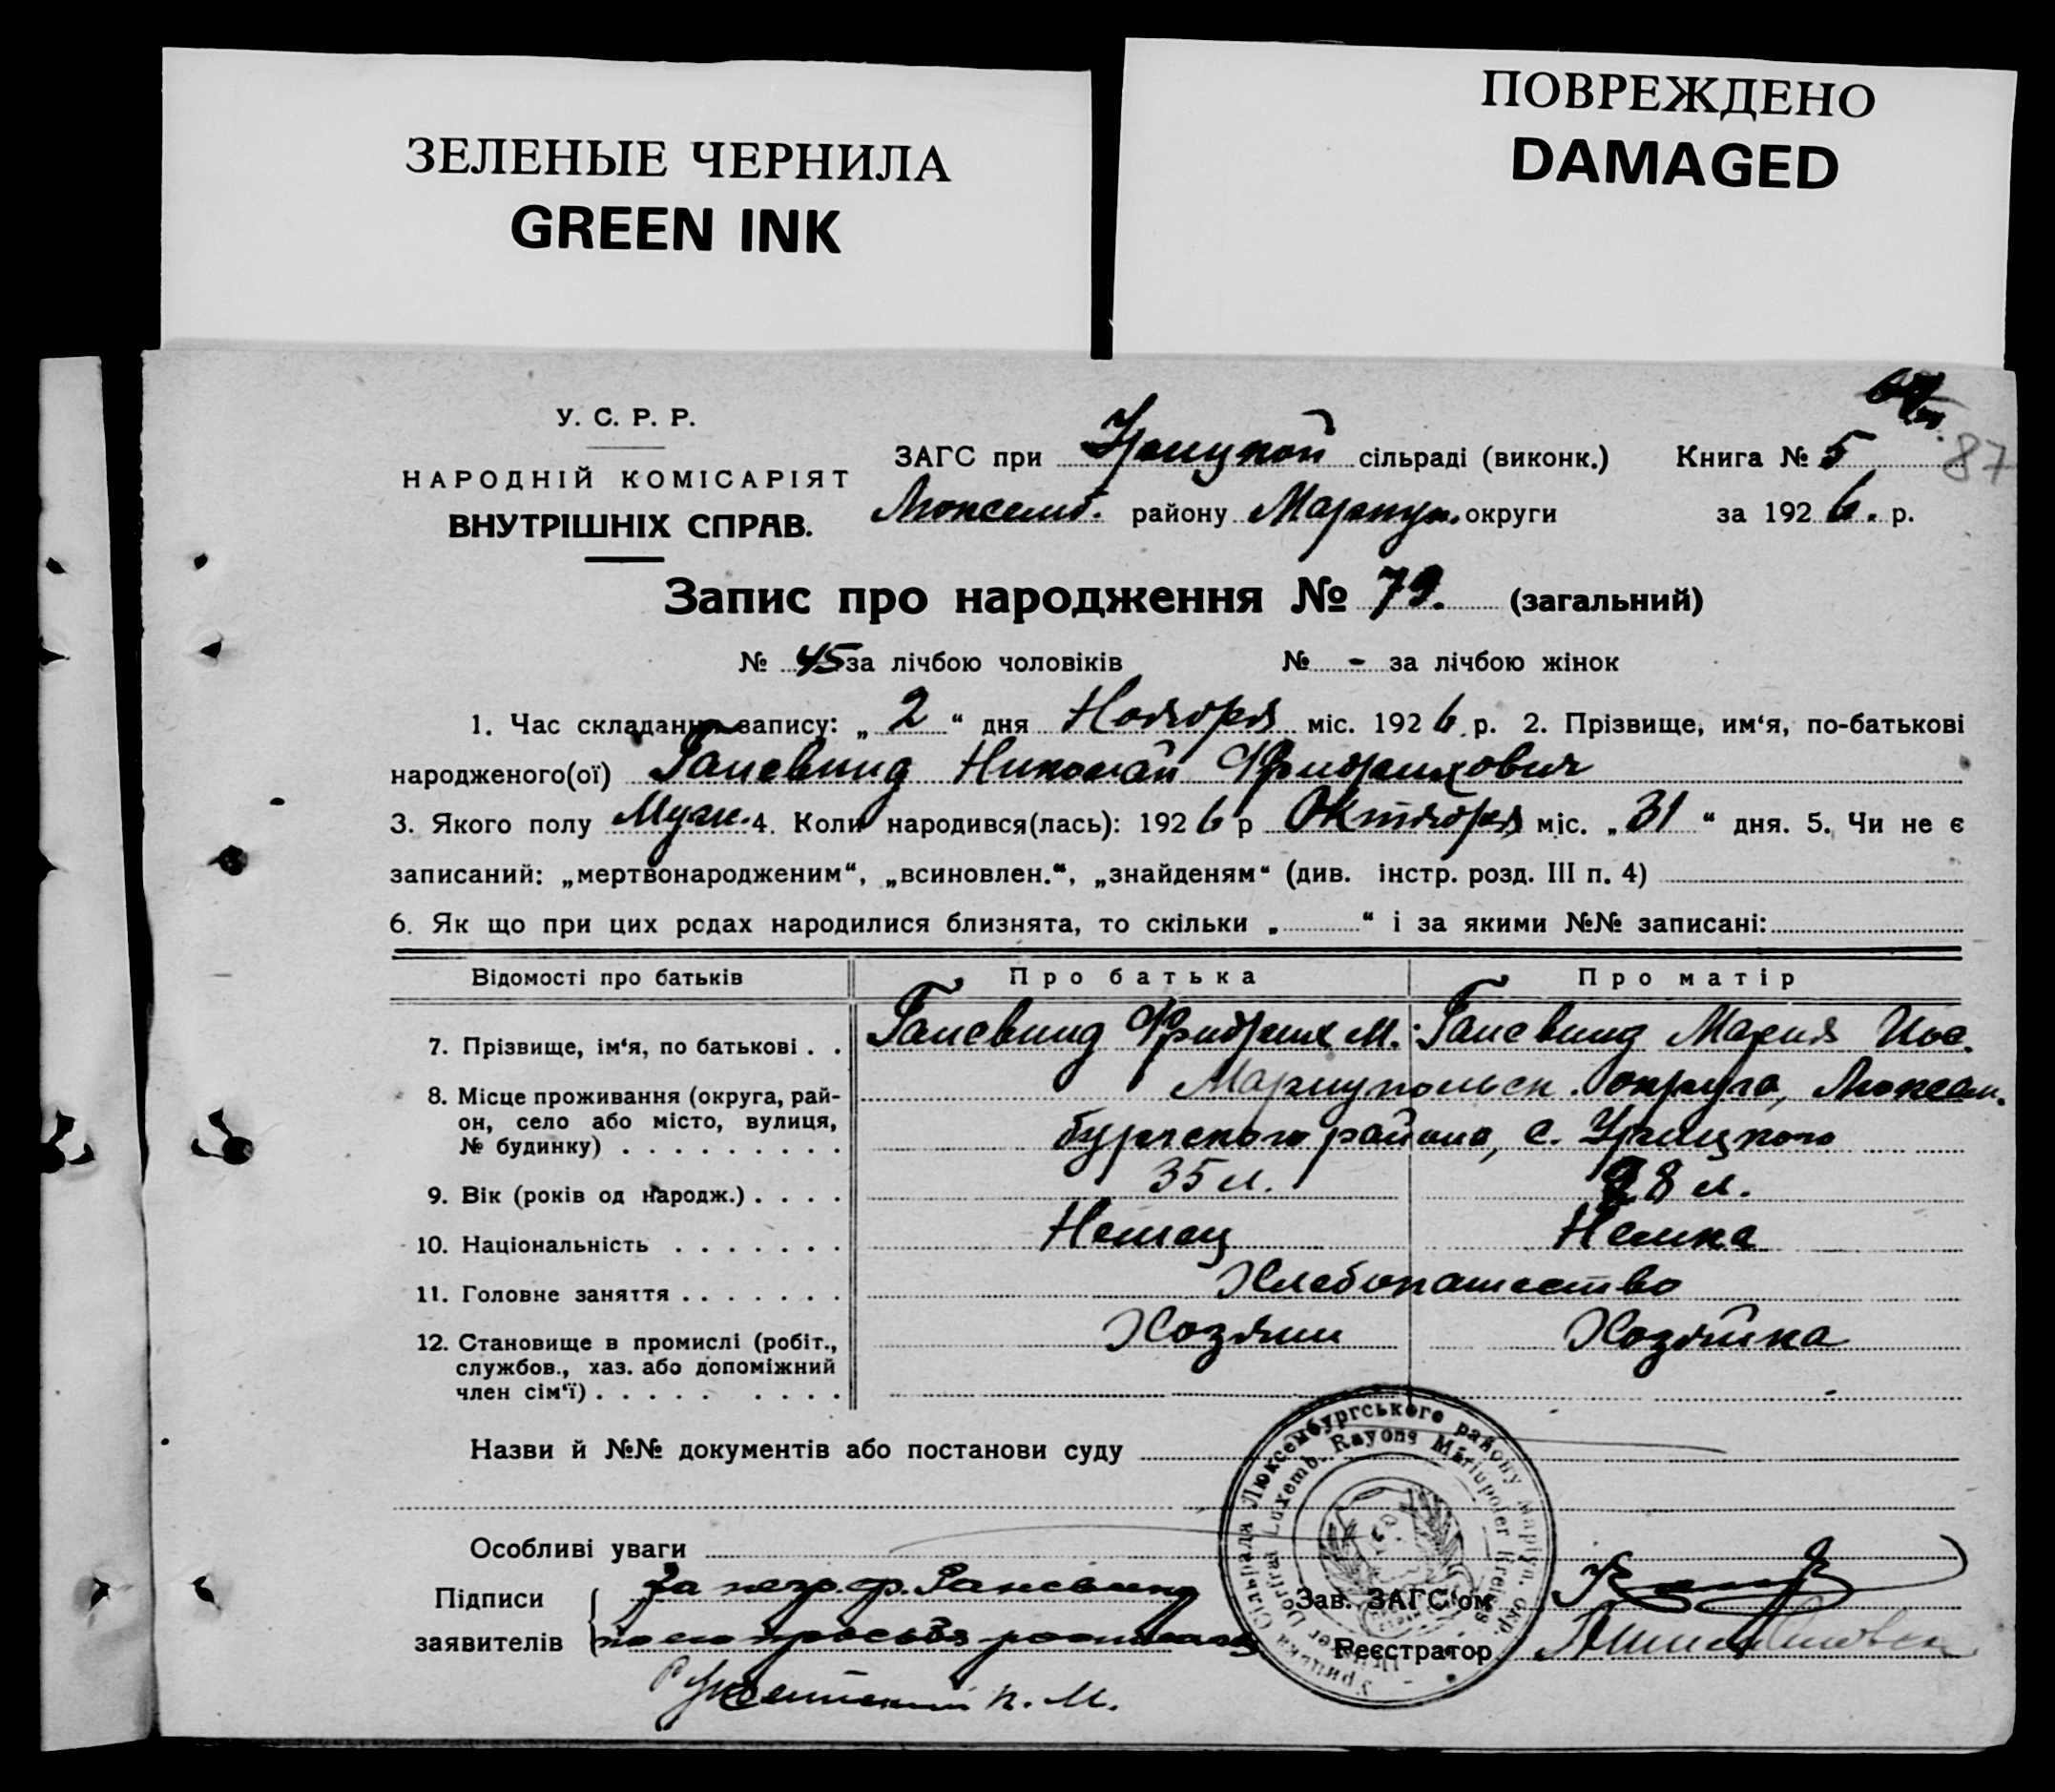 ЗЕЛЕНЫЕ ЧЕРНИЛА
GREEN INK
ПОВРЕЖДЕНО
DAMAGED
87
У. С. Р. Р.
НАРОДНІЙ КОМІСАРІЯТ
ВНУТРІШНІХ СПРАВ.
ЗАГС при Урицкой сільраді (виконк.) Книга № 5
Люксемб. району Мариуп. округи за 1926. р.
Запис про народження № 79. (загальний)
№ 45 за лічбою чоловіків № - за лічбою жінок
1. Час складання запису: „ 2 “ дня Ноября міс. 1926 р. 2. Прізвище, им‘я, по-батькові
народженого(ої) Гансвинд Николай Фридрихович
3. Якого полу Муж. 4. Коли народився(лась): 1926 р Октября міс. „ 31 “ дня. 5. Чи не є
записаний: „мертвонародженим“, „всиновлен.“, „знайденям“ (див. інстр. розд. III п. 4)
6. Як що при цих родах народилися близнята, то скільки „ “ і за якими №№ записані:
Відомості про батьків Про батька Про матір
7. Прізвище, ім‘я, по батькові . . Гансвинд Фридрих М. Гансвинд Мария Иос.
8. Місце проживання (округа, рай- Мариупольск. округа, Люксем.
он, село або місто, вулиця, бургского района, с. Урицкого
№ будинку) . . . . . . . . .
9. Вік (років од народж.) . . . . 35 л. 28 л.
10. Національність . . . . . . . Немец Немка
11. Головне заняття . . . . . . . Хлебопашество
12. Становище в промислі (робіт., Хозяин Хозяйка
службов., хаз. або допоміжний
член сім‘ї) . . . . . . . . .
Назви й №№ документів або постанови суду
Особливі уваги
Підписи За негр. ф. Гансвинд Зав. ЗАГС‘ом
заявителів по его просьбе росписался Реєстратор
П. М.
Урицька Сільрада Люксембургського району Маріуп. окр.
Luxemb. Rayons Mariupoler Kreises